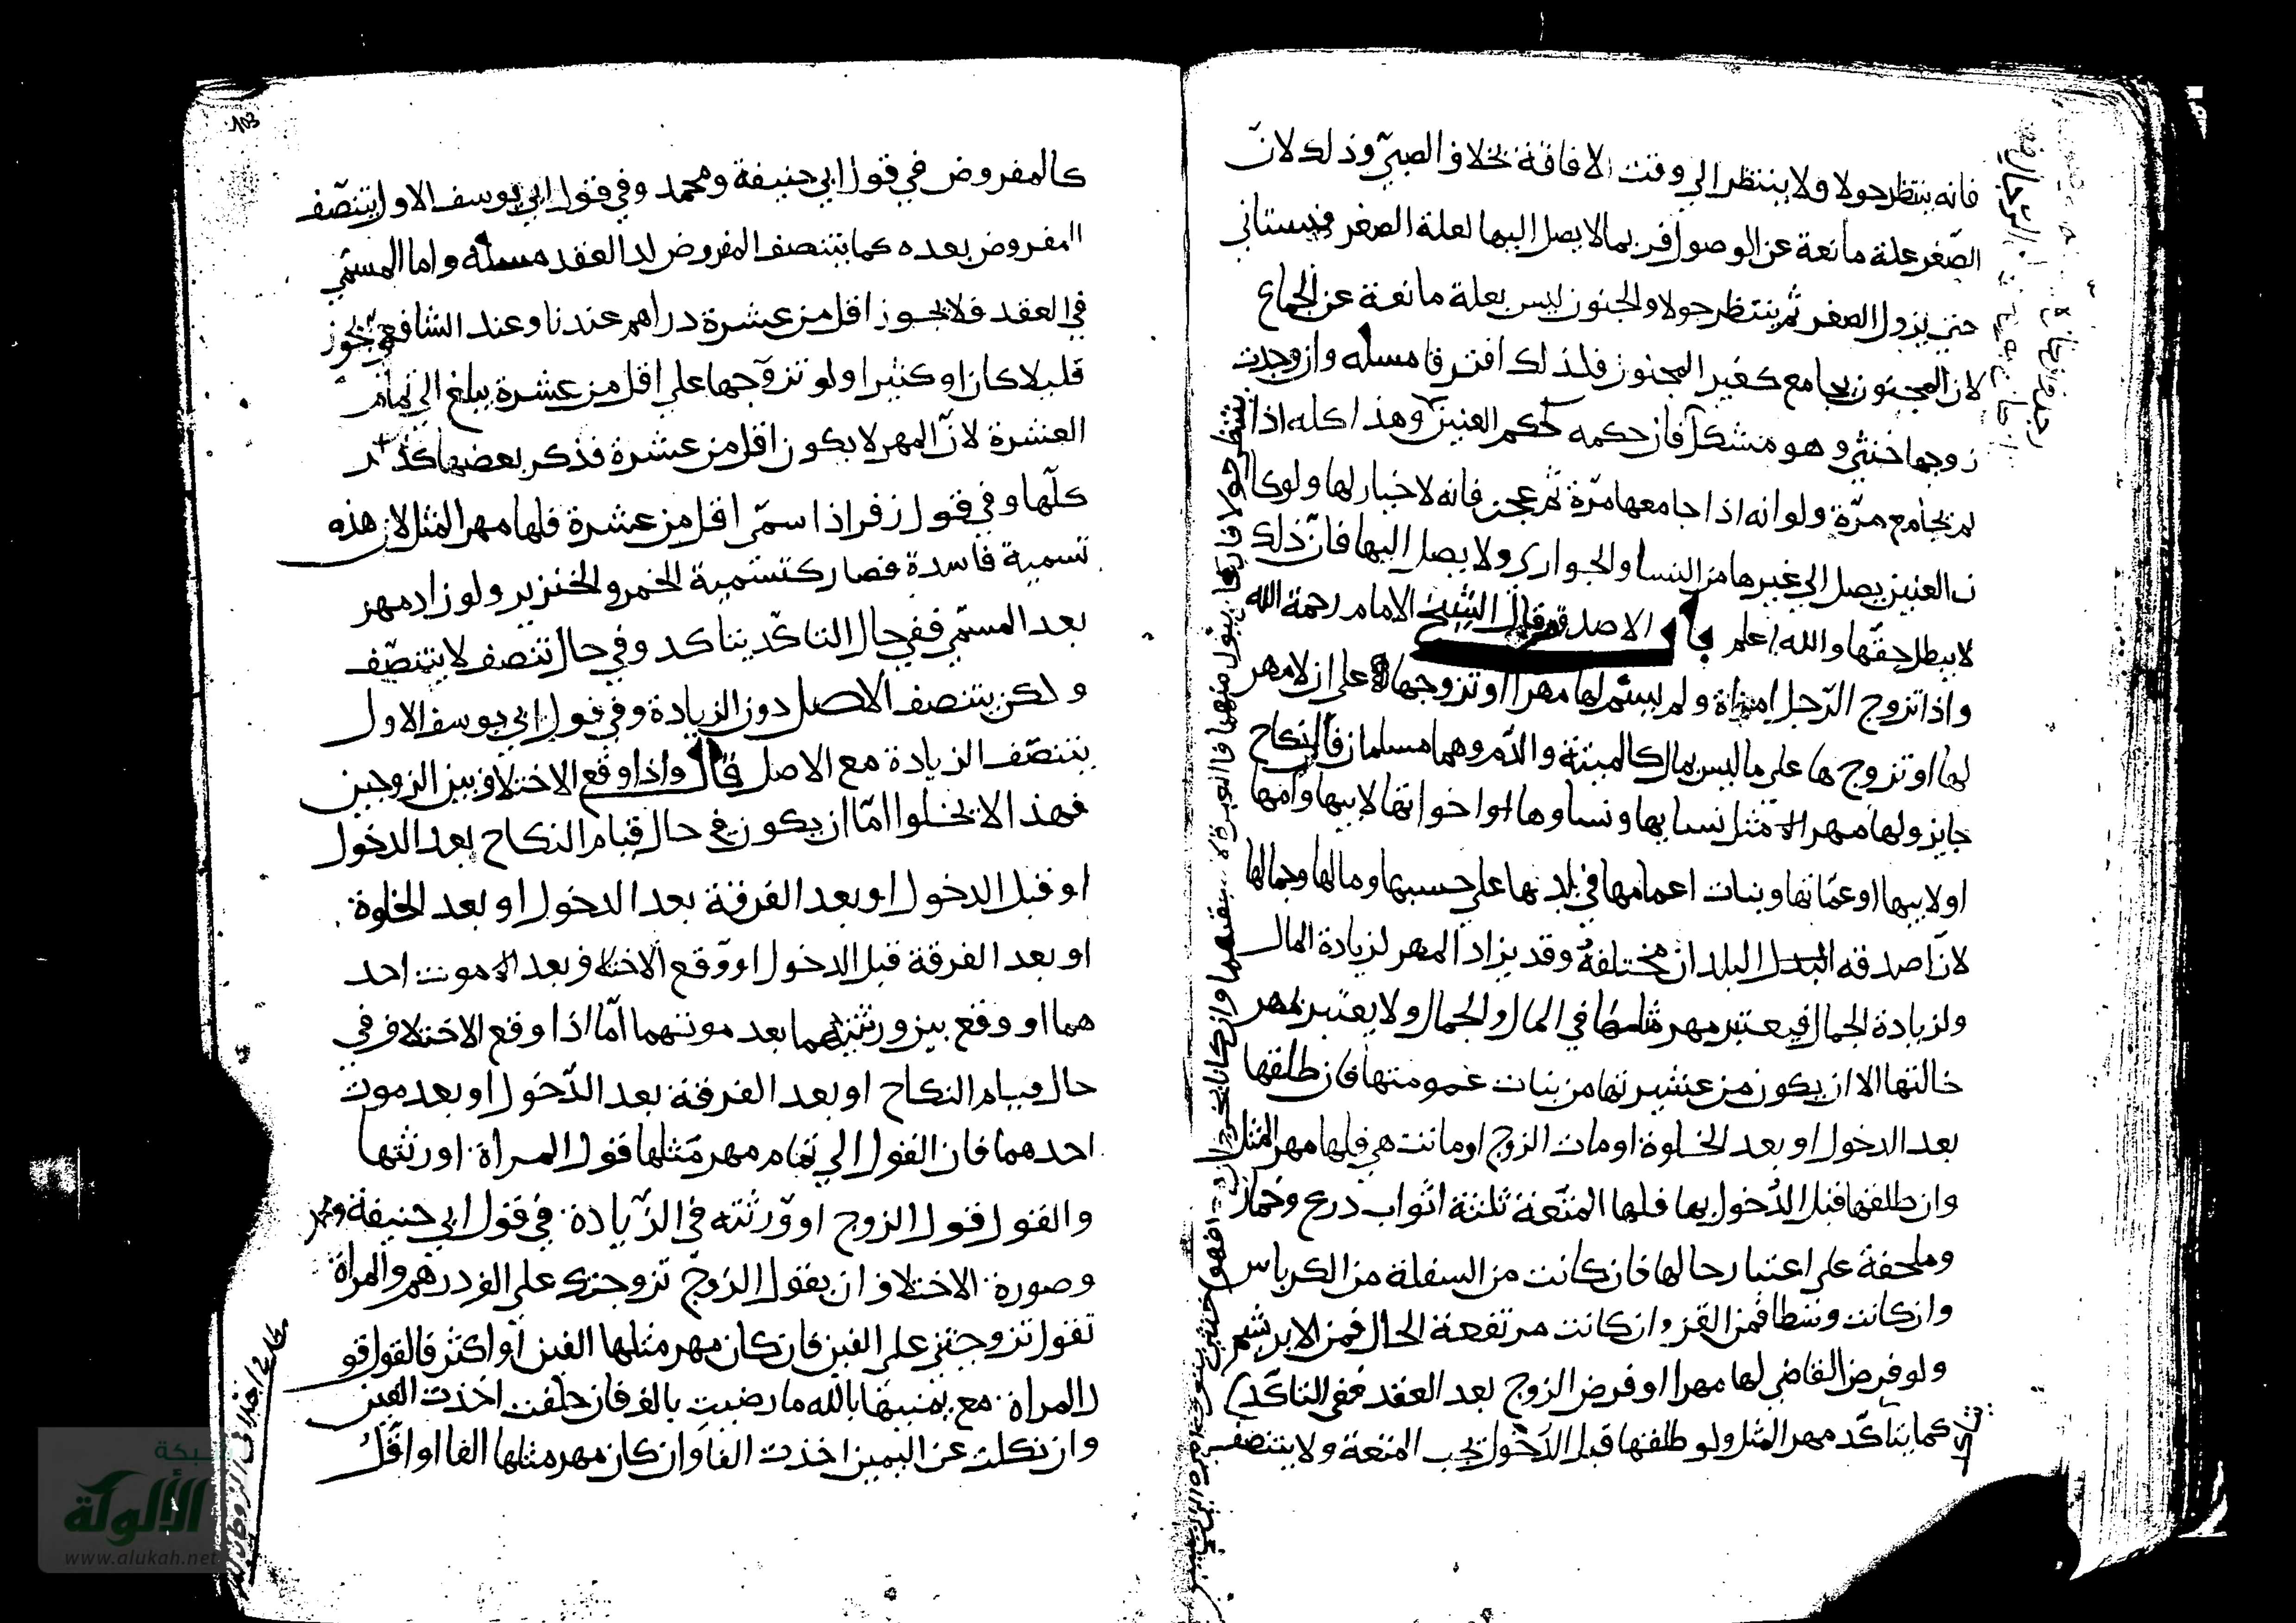 فانه ينتظر حولا ولا ينتظر الى وقت الافاقة بخلاف الصبي وذلك لان
الصغر علة مانعة عن الوصول فربما لا يصل اليها لعلة الصغر فيستاني
حتى يزول الصغر ثم ينتظر حولا والجنون ليس بعلة مانعة عن الجماع
لان المجنون يجامع كغير المجنون فلذلك افترقا مسئلة وان وجدت
زوجها خنثى وهو مشكل فان حكمه حكم العنين وهذا كله اذا
لم يجامع مرة ولو انه اذا جامعها مرة ثم عجز فانه لا خيار لها ولو كا
ن العنين يصل الى غيرها من النسا والجواري ولا يصل اليها فان ذلك
لا يبطل حقها والله اعلم باب الاصدقة قال الشيخ الامام رحمة الله
واذا تزوج الرجل امراة ولم يسم لها مهرا او تزوجها على ان لا مهر
لها او تزوجها على ما ليس بمال كالميتة والدم وهما مسلمان فالنكاح
جايز ولها مهر مثل نسايها ونساوها اخواتها لابيها وامها
او لابيها او عماتها وبنات اعمامها في بلدتها على حسبها ومالها وجمالها
لان اصدقه البلدان مختلفة وقد يزاد المهر لزيادة المال
ولزيادة الجمال فيعتبر مهر مثلها في المال والجمال ولا يعتبر بمهر
خالتها الا ان يكون من عشيرتها من بنات عمومتها فان طلقها
بعد الدخول او بعد الخلوة او مات الزوج او ماتت هي فلها مهر المثل
وان طلقها قبل الدخول بها فلها المتعة ثلثة اثواب درع وخمار
وملحفة على اعتبار حالها فان كانت من السفلة من الكرباس
وان كانت وسطا فمن القز وان كانت مرتفعة الحال فمن الابريشم
ولو فرض القاضي لها مهرا او فرض الزوج بعد العقد ففي التاكد
كما يتاكد مهر المثل ولو طلقها قبل الدخول يجب المتعة ولا يتنصف
103
كالمفروض في قول ابي حنيفة ومحمد وفي قول ابي يوسف الاول يتنصف
المفروض بعده كما يتنصف المفروض لدا العقد مسئلة واما المسمى
في العقد فلا يجوز اقل من عشرة دراهم عندنا وعند الشافعي يجوز
قليلا كان او كثيرا ولو تزوجها على اقل من عشرة يبلغ الى تمام
العشرة لان المهر لا يكون اقل من عشرة فذكر بعضها كذكر
كلها وفي قول زفر اذا سمى اقل من عشرة فلها مهر المثل لان هذه
تسمية فاسدة فصار كتسمية الخمر والخنزير ولو زاد مهر
بعد المسمى ففي حال التاكد يتاكد وفي حال تنصف لا يتنصف
ولكن يتنصف الاصل دون الزيادة وفي قول ابي يوسف الاول
يتنصف الزيادة مع الاصل قال واذا وقع الاختلاف بين الزوجين
فهذا لا يخلوا اما ان يكون في حال قيام النكاح بعد الدخول
او قبل الدخول او بعد الفرقة بعد الدخول او بعد الخلوة
او بعد الفرقة قبل الدخول او وقع الاختلاف بعد موت احد
هما او وقع بين ورثتهما بعد موتهما اما اذا وقع الاختلاف في
حال قيام النكاح او بعد الفرقة بعد الدخول او بعد موت
احدهما فان القول الى تمام مهر مثلها قول المراة او رثتها
والقول قول الزوج او ورثته في الزيادة في قول ابي حنيفة ومحمد
وصورة الاختلاف ان يقول الزوج تزوجتك على الف درهم والمراة
تقول تزوجتني على الفين فان كان مهر مثلها الفين او اكثر فالقول قو
ل المراة مع يمينها بالله ما رضيت بالف فان حلفت اخذت الفين
وان نكلت عن اليمين اخذت الفا وان كان مهر مثلها الفا او اقل
شبكة
الألوكة
www.alukah.net